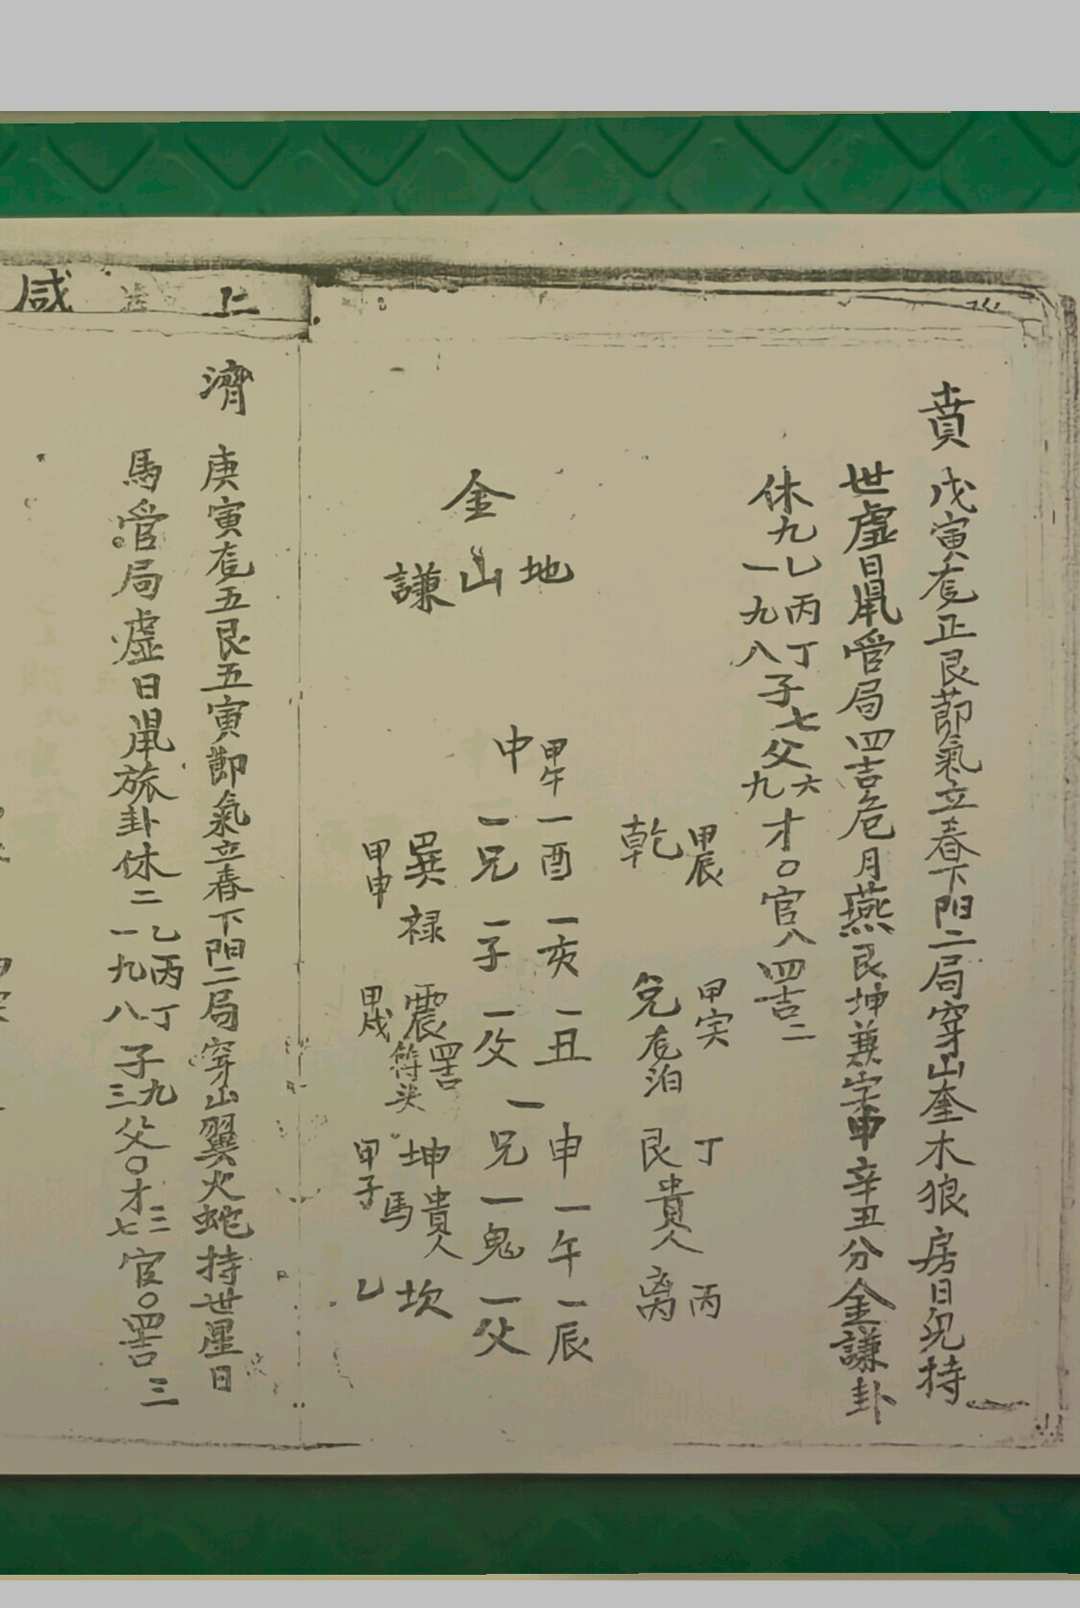 賁
戊寅危正艮節氣立春下陽二局穿山奎木狼房日兔持
世虛日鼠管局四吉危月燕艮坤兼字申辛丑分金謙卦
休九乙丙丁子七父六才〇官八四吉二
一九八九
乾 甲辰
兌危泊 甲寅
艮貴人 丁
离 丙
金
地山謙
中
甲午一酉一亥一丑一申一午一辰
一兄一子一父一兄一鬼一父
巽祿 甲申
震符头四吉 甲戌
坤貴人馬 甲子
坎 乙
濟
庚寅危五艮五寅節氣立春下陽二局穿山翼火蛇持世星日
馬管局虛日鼠旅卦休二乙丙丁子九父〇才三官〇四吉三
一九八三七
咸